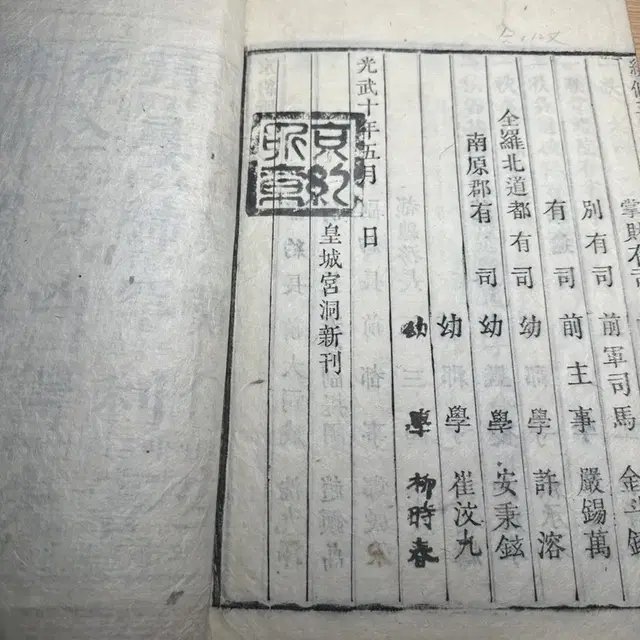 掌財有司
別有司前軍司馬金鉉
有司前主事嚴錫萬
全羅北道都有司幼學許溶
南原郡有司幼學安秉鉉
幼學崔汶九
幼學柳時春
光武十年五月 日
皇城宮洞新刊
京約